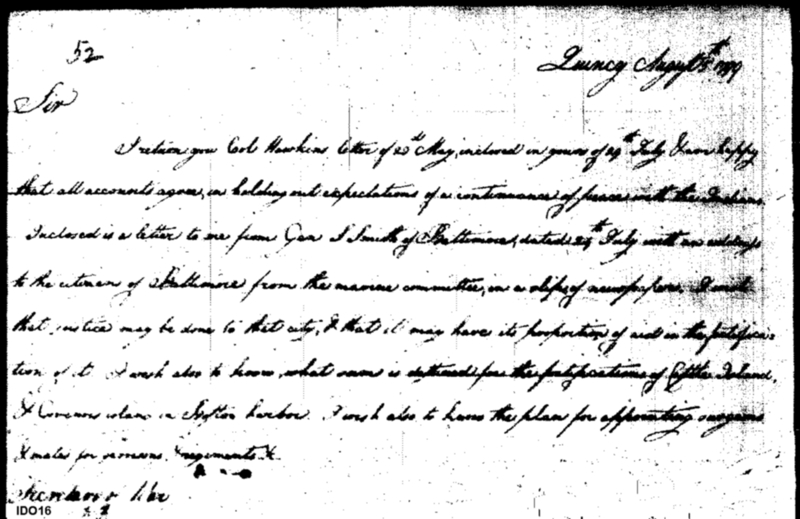 52
Quincy August 5th 1799
Sir
I return you Col Hawkins letter of 20th May, inclosed in yours of 29th July & am happy
that all accounts agree, in holding out expectations of a continuance of peace with the Indians.
Inclosed is a letter to me from Gen S Smith of Baltimore, dated 29th July with an address
to the citizens of Baltimore from the marine committee, in a slip of newspaper. I wish
that justice may be done to that city, & that it may have its proportion of aid in the fortifica=
tion of it I wish also to know, what sum is destined for the fortifications of Castle Island,
& Governors island in Boston harbor. I wish also to know the plan for appointing surgeons
& mates for garrisons, & regiments &c
Secretary
IDO16